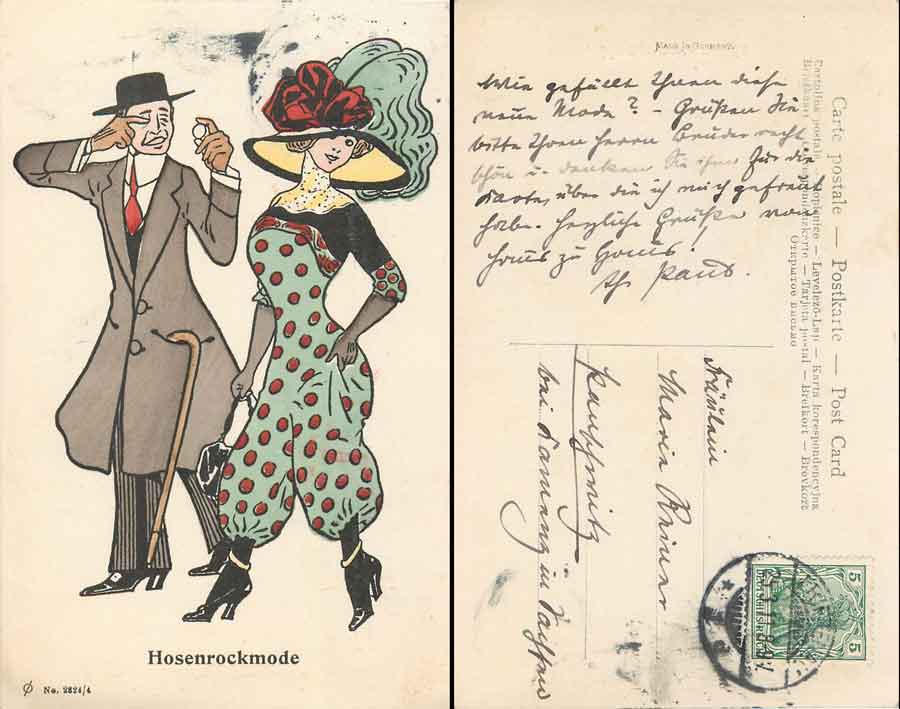 Hosenrockmode
No. 2824/4
MADE IN GERMANY
Wie gefällt Ihnen diese
neue Mode? – Grüßen Sie
bitte Ihren Herrn Bruder recht
schön u. danken Sie ihm für die
Karte, über die ich mich gefreut
habe. Herzliche Grüße von
Haus zu Haus!
Fräulein
Maria
bei Kamenz in Sachsen
Carte postale — Postkarte — Post Card
Levelező-Lap — Karta korespondencyjna
Tarjeta postal — Brefkort — Brevkort
Открытое письмо
5 5
DEUTSCHES REICH